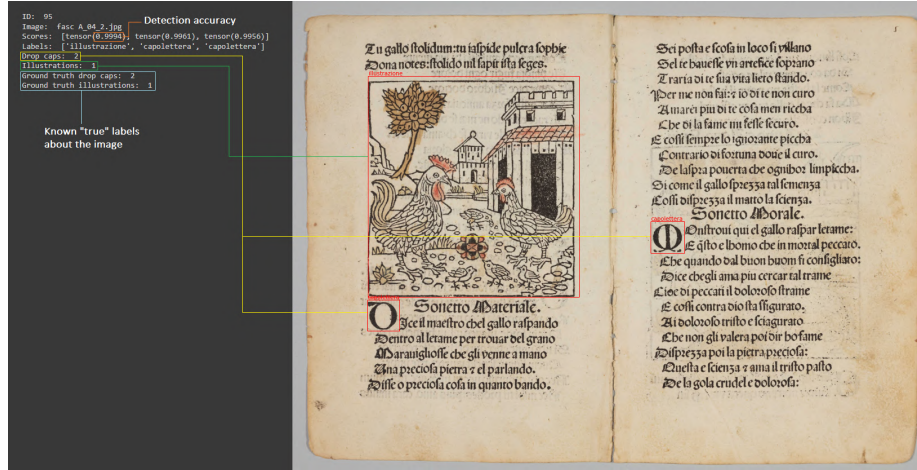 ID: 95
Image: fasc A_04_2.jpg
Scores: [tensor(0.9994), tensor(0.9961), tensor(0.9956)]
Labels: ['illustrazione', 'capolettera', 'capolettera']
Drop caps: 2
Illustrations: 1
Ground truth drop caps: 2
Ground truth illustrations: 1
Detection accuracy
Known "true" labels
about the image
Tu gallo stolidum:tu iaspide pulcra sophie
Dona notes:stolido nil sapit ista seges.
illustrazione
Sonetto Materiale.
DIce il maestro chel gallo raspando
Dentro al letame per trouar del grano
Marauigliosse che gli venne a mano
Una preciosa pietra ⁊ el parlando.
Disse o preciosa cosa in quanto bando.
Sei posta e scosa in loco si villano
Sel te bauesse vn artefice soprano
Traria di te sua vita lieto stando.
Per me non fai:⁊ io di te non curo
Amarei piu di te cosa men riccha
Che di la fame mi fesse securo.
E cossi sempre lo ignorante piccha
Contrario di fortuna doue il curo.
De laspra pouerta che ognihor limpiccha.
Si come il gallo sprezza tal semenza
Cossi disprezza il matto la scienza.
Sonetto Morale.
capolettera
MOnstroui qui el gallo raspar letame:
E q̃sto e lhomo che in mortal peccato.
Che quando dal buon huom si consigliato:
Dice chegli ama piu cercar tal trame
Cioe di peccati il doloroso strame
E cossi contra dio sta sfigurato.
Ai doloroso tristo e sciagurato
Che non gli valera poi dir ho fame
Disprezza poi la pietra preciosa:
Questa e scienza ⁊ ama il tristo pasto
De la gola crudel e dolorosa: